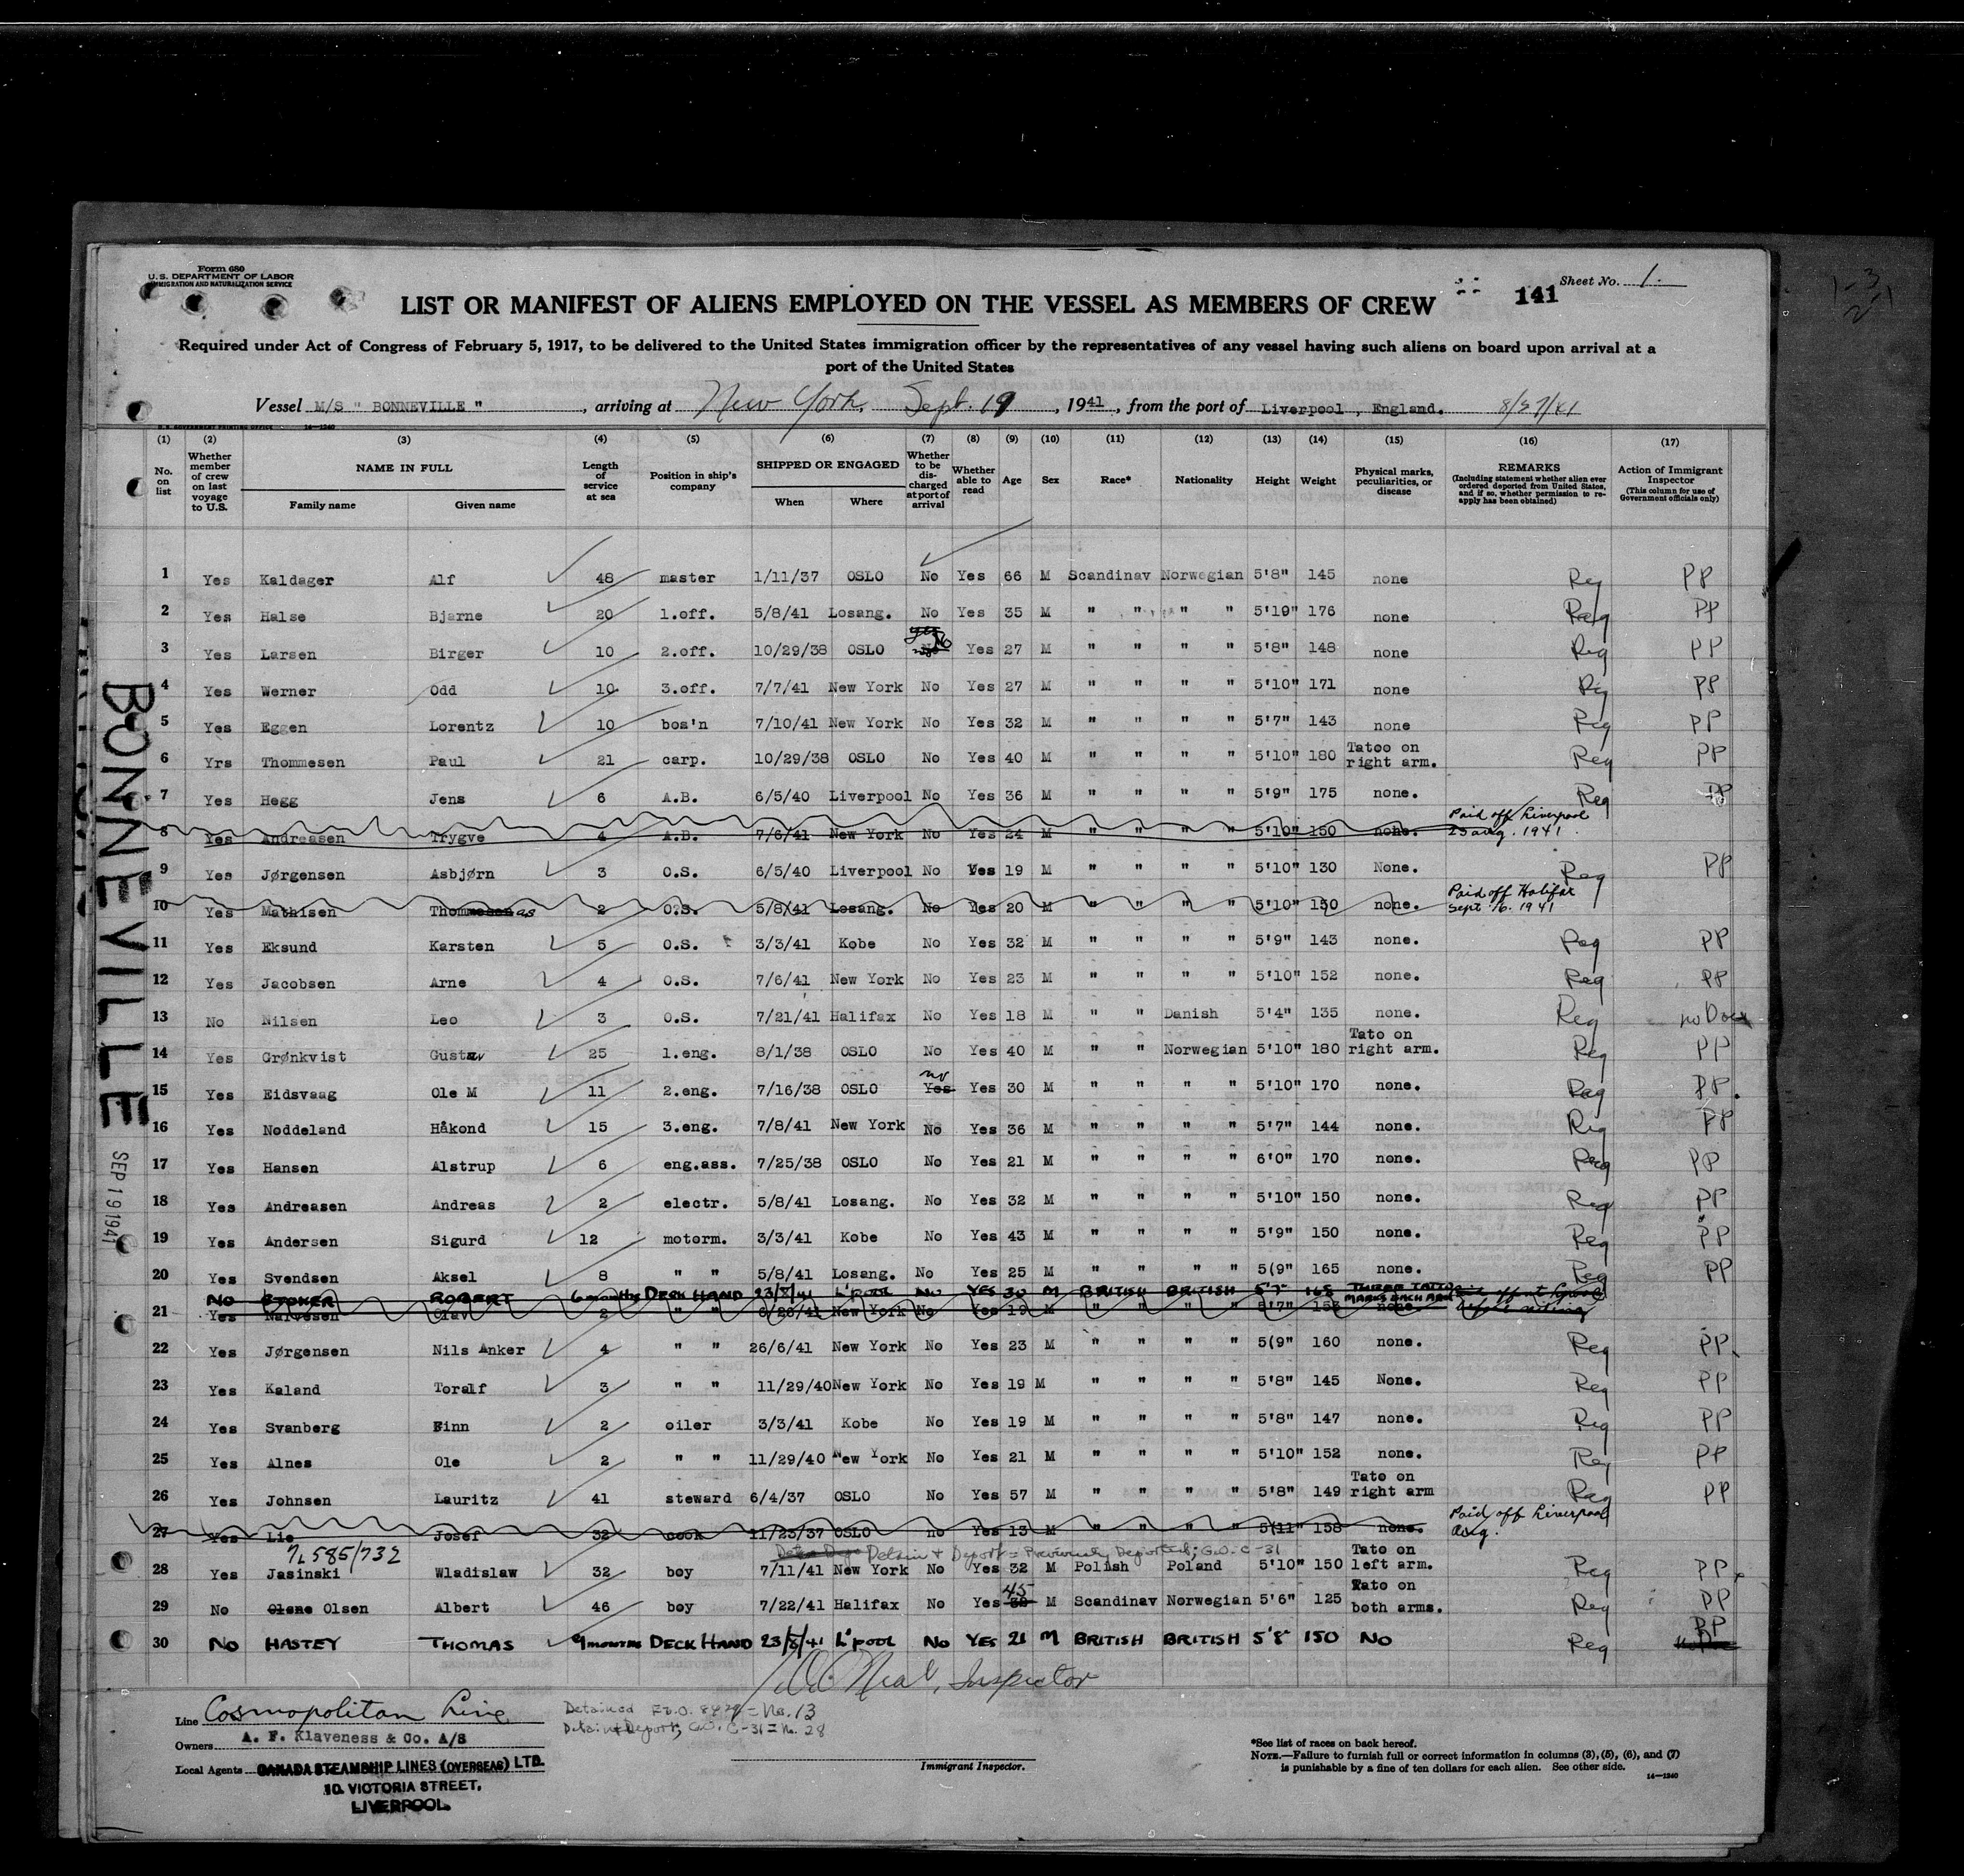 Form 680
U. S. DEPARTMENT OF LABOR
IMMIGRATION AND NATURALIZATION SERVICE
141
Sheet No. 1.
LIST OR MANIFEST OF ALIENS EMPLOYED ON THE VESSEL AS MEMBERS OF CREW
Required under Act of Congress of February 5, 1917, to be delivered to the United States immigration officer by the representatives of any vessel having such aliens on board upon arrival at a
port of the United States
Vessel M/S " BONNEVILLE " , arriving at New York, Sept. 19 , 1941 , from the port of Liverpool , England.
U.S. GOVERNMENT PRINTING OFFICE 14—1240
(1) (2) (3) (4) (5) (6) (7) (8) (9) (10) (11) (12) (13) (14) (15) (16) (17)
No. on list
Whether member of crew on last voyage to U.S.
NAME IN FULL
Family name
Given name
Length of service at sea
Position in ship's company
SHIPPED OR ENGAGED
When
Where
Whether to be discharged at port of arrival
Whether able to read
Age
Sex
Race*
Nationality
Height
Weight
Physical marks, peculiarities, or disease
REMARKS
(Including statement whether alien ever ordered deported from United States, and if so, whether permission to reapply has been obtained)
Action of Immigrant Inspector
(This column for use of Government officials only)
1 Yes Kaldager Alf 48 master 1/11/37 OSLO No Yes 66 M Scandinav Norwegian 5'8" 145 none Reg PP
2 Yes Halse Bjarne 20 1.off. 5/8/41 Losang. No Yes 35 M " " " " 5'10" 176 none Reg PP
3 Yes Larsen Birger 10 2.off. 10/29/38 OSLO No Yes 27 M " " " " 5'8" 148 none Reg PP
4 Yes Werner Odd 10 3.off. 7/7/41 New York No Yes 27 M " " " " 5'10" 171 none Reg PP
5 Yes Eggen Lorentz 10 bos'n 7/10/41 New York No Yes 32 M " " " " 5'7" 143 none Reg PP
6 Yrs Thommesen Paul 21 carp. 10/29/38 OSLO No Yes 40 M " " " " 5'10" 180 Tatoo on right arm. Reg PP
7 Yes Hegg Jens 6 A.B. 6/5/40 Liverpool No Yes 36 M " " " " 5'9" 175 none. Reg PP
8 Yes Andreasen Trygve 4 A.B. 7/6/41 New York No Yes 24 M " " " " 5'10" 150 none. Paid off Liverpool 23 aug. 1941.
9 Yes Jørgensen Asbjørn 3 O.S. 6/5/40 Liverpool No Yes 19 M " " " " 5'10" 130 None. Reg PP
10 Yes Mathisen Thomas 2 O.S. 5/8/41 Losang. No Yes 20 M " " " " 5'10" 150 none. Paid off Halifax Sept. 16. 1941
11 Yes Eksund Karsten 5 O.S. 3/3/41 Kobe No Yes 32 M " " " " 5'9" 143 none. Reg PP
12 Yes Jacobsen Arne 4 O.S. 7/6/41 New York No Yes 23 M " " " " 5'10" 152 none. Reg PP
13 No Nilsen Leo 3 O.S. 7/21/41 Halifax No Yes 18 M " " Danish 5'4" 135 none. Reg no Docs
14 Yes Grønkvist Gustav 25 1.eng. 8/1/38 OSLO No Yes 40 M " " Norwegian 5'10" 180 Tato on right arm. Reg PP
15 Yes Eidsvaag Ole M 11 2.eng. 7/16/38 OSLO Yes no Yes 30 M " " " " 5'10" 170 none. Reg PP.
16 Yes Nøddeland Håkond 15 3.eng. 7/8/41 New York No Yes 36 M " " " " 5'7" 144 none. Reg PP
17 Yes Hansen Alstrup 6 eng.ass. 7/25/38 OSLO No Yes 21 M " " " " 6'0" 170 none. Reg PP
18 Yes Andreasen Andreas 2 electr. 5/8/41 Losang. No Yes 32 M " " " " 5'10" 150 none. Reg PP
19 Yes Andersen Sigurd 12 motorm. 3/3/41 Kobe No Yes 43 M " " " " 5'9" 150 none. Reg PP
20 Yes Svendsen Aksel 8 " " 5/8/41 Losang. No Yes 25 M " " " " 5(9" 165 none. Reg PP
NO STOKER ROBERT 6 months DECK HAND 23/8/41 L'POOL NO YES 30 M BRITISH BRITISH 5'7" 165 THREE TATTO MARKS EACH ARM
21 Yes Narvesen Olav 2 " " 6/20/41 New York No Yes 19 M " " " " 5'7" 153 none.
22 Yes Jørgensen Nils Anker 4 " " 26/6/41 New York No Yes 23 M " " " " 5(9" 160 none. Reg PP.
23 Yes Kaland Toralf 3 " " 11/29/40 New York No Yes 19 M " " " " 5'8" 145 None. Reg PP
24 Yes Svanberg Finn 2 oiler 3/3/41 Kobe No Yes 19 M " " " " 5'8" 147 none. Reg PP
25 Yes Alnes Ole 2 " " 11/29/40 New York No Yes 21 M " " " " 5'10" 152 none. Reg PP
26 Yes Johnsen Lauritz 41 steward 6/4/37 OSLO No Yes 57 M " " " " 5'8" 149 Tato on right arm Reg PP
27 Yes Lie Josef 32 cook 11/23/37 OSLO no Yes 13 M " " " " 5(11" 158 none. Paid off Liverpool aug.
7L585/732 Detain & Deport = Previously Deported; G.O. C-31
28 Yes Jasinski Wladislaw 32 boy 7/11/41 New York No Yes 32 M Polish Poland 5'10" 150 Tato on left arm. Reg PP.
29 No Olsen Albert 46 boy 7/22/41 Halifax No Yes 45 M Scandinav Norwegian 5'6" 125 Tato on both arms. Reg PP
30 No HASTEY THOMAS 9 MONTHS DECK HAND 23/8/41 L'pool No YES 21 M BRITISH BRITISH 5'8" 150 NO Reg PP
Inspector
Line Cosmopolitan Line
Owners A. F. Klaveness & Co. A/S
Local Agents CANADA STEAMSHIP LINES (OVERSEAS) LTD.
10. VICTORIA STREET,
LIVERPOOL.
Detained = No. 13
Detain & Deport; G.O. C-31 = No. 28
Immigrant Inspector.
*See list of races on back hereof.
NOTE.—Failure to furnish full or correct information in columns (3), (5), (6), and (7)
is punishable by a fine of ten dollars for each alien. See other side.
14—1240
BONNEVILLE
SEP 19 1941